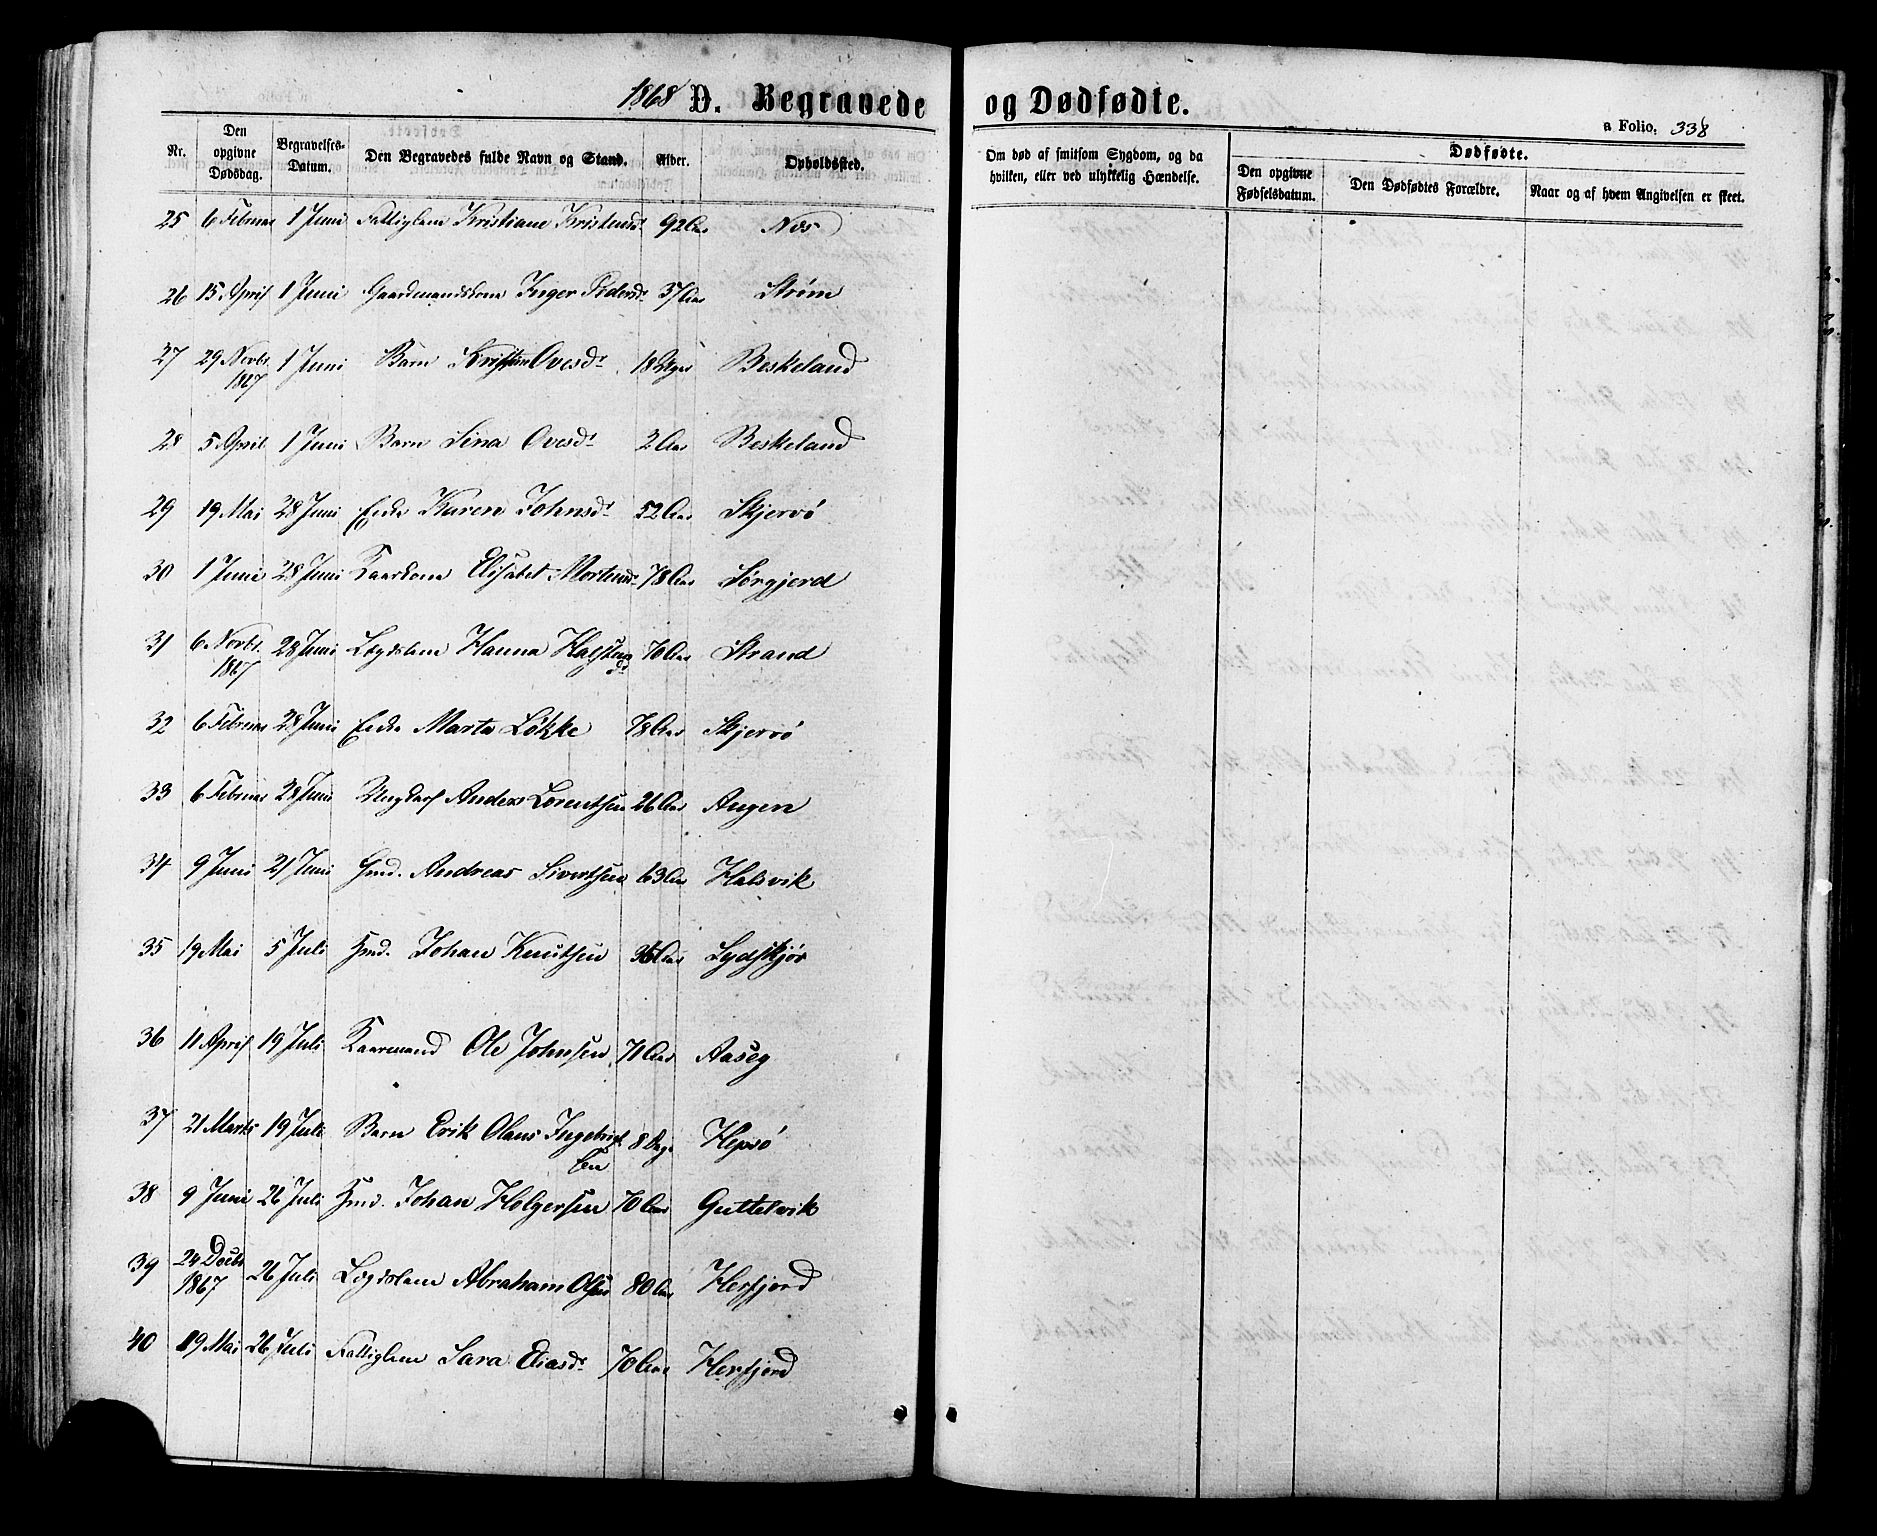 1868 D. Begravede og Dødfødte.
a Folio. 338
Nr. Den opgivne Dødsdag. Begravelses-Datum. Den Begravedes fulde Navn og Stand. Alder. Opholdssted.
Om død af smitsom Sygdom, og da hvilken, eller ved ulykkelig Hændelse. Dødfødte. Den opgivne Fødselsdatum. Den Dødfødtes Forældre. Naar og af hvem Angivelsen er skeet.
25 6 Februar 1 Juni Fattiglem Kristiane Kristensdr 92 Aar Næs
26 15 April 1 Juni Gaardmandskone Inger Pedersdr 37 Aar Strøm
27 29 Novbr. 1 Juni Barn Ovesdr 18 Beskeland
1867
28 5 April 1 Juni Barn Lina Ovesdr 2 Aar Beskeland
29 19 Mai 28 Juni Enke Karen Johnsdr 52 Aar Skjervø
30 1 Juni 28 Juni Kaarkone Elisabet Mortensdr 78 Aar Sørgjerd
31 6 Novbr. 28 Juni Lægdslem Hanna 70 Aar Strand
1867
32 6 Februar 28 Juni Enke Marta Løkke 78 Aar Skjervø
33 6 Februar 28 Juni Ungkarl Anders Lorentsen 26 Aar Angen
34 9 Juni 21 Juni Gmd. Andreas Sivertsen 63 Aar Halsvik
35 19 Mai 5 Juli Hmd. Johan Knutsen Aar
36 11 April 19 Juli Kaarmand Ole Johnsen 71 Aar Aaseg
37 21 Marts 19 Juli Barn Erik Olaus Ingebrigt 8 Dage Hepsø
sen
38 9 Juni 26 Juli Hmd. Johan Holgersen 70 Aar Guttelvik
39 24 Decbr 26 Juli Lægdslem Abraham Olsen 80 Aar Herfjord
1867
40 19 Mai 26 Juli Fattiglem Sara Eliasdr 70 Aar Herfjord